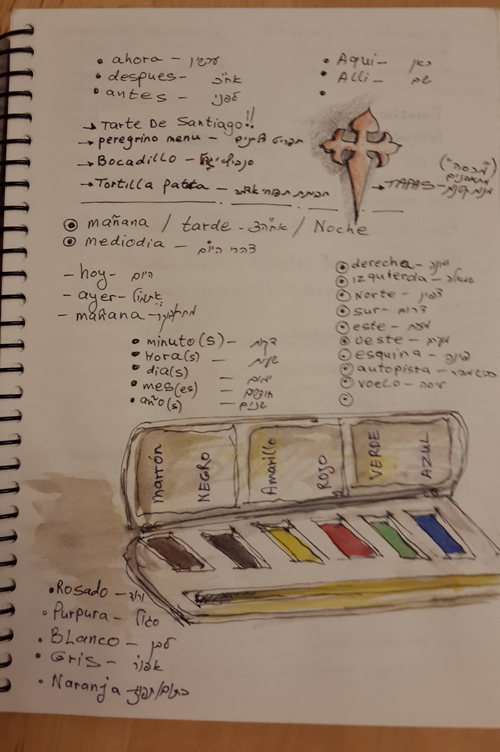 ahora – עכשיו
despues – אח"כ
antes – לפני
Aqui – כאן
Alli – שם
Tarte De Santiago!!
peregrino menu – תפריט
Bocadillo –
Tortilla patata –
TAPAS –
mañana / tarde – אחה"צ / Noche
mediodia – צהרי היום
hoy – היום
ayer – אתמול
mañana –
derecha – ימינה
izquierda – שמאלה
Norte – צפון
sur – דרום
este – מזרח
oeste – מערב
esquina – פינה
autopista –
vuelo – טיסה
minuto(s) – דקות
Hora(s) – שעות
dia(s) – ימים
mes(es) – חודשים
año(s) – שנים
Marrón
NEGRO
Amarillo
ROJO
VERDE
AZUL
Rosado – ורוד
Purpura – סגול
BLanco – לבן
Gris – אפור
Naranja – כתום/תפוז